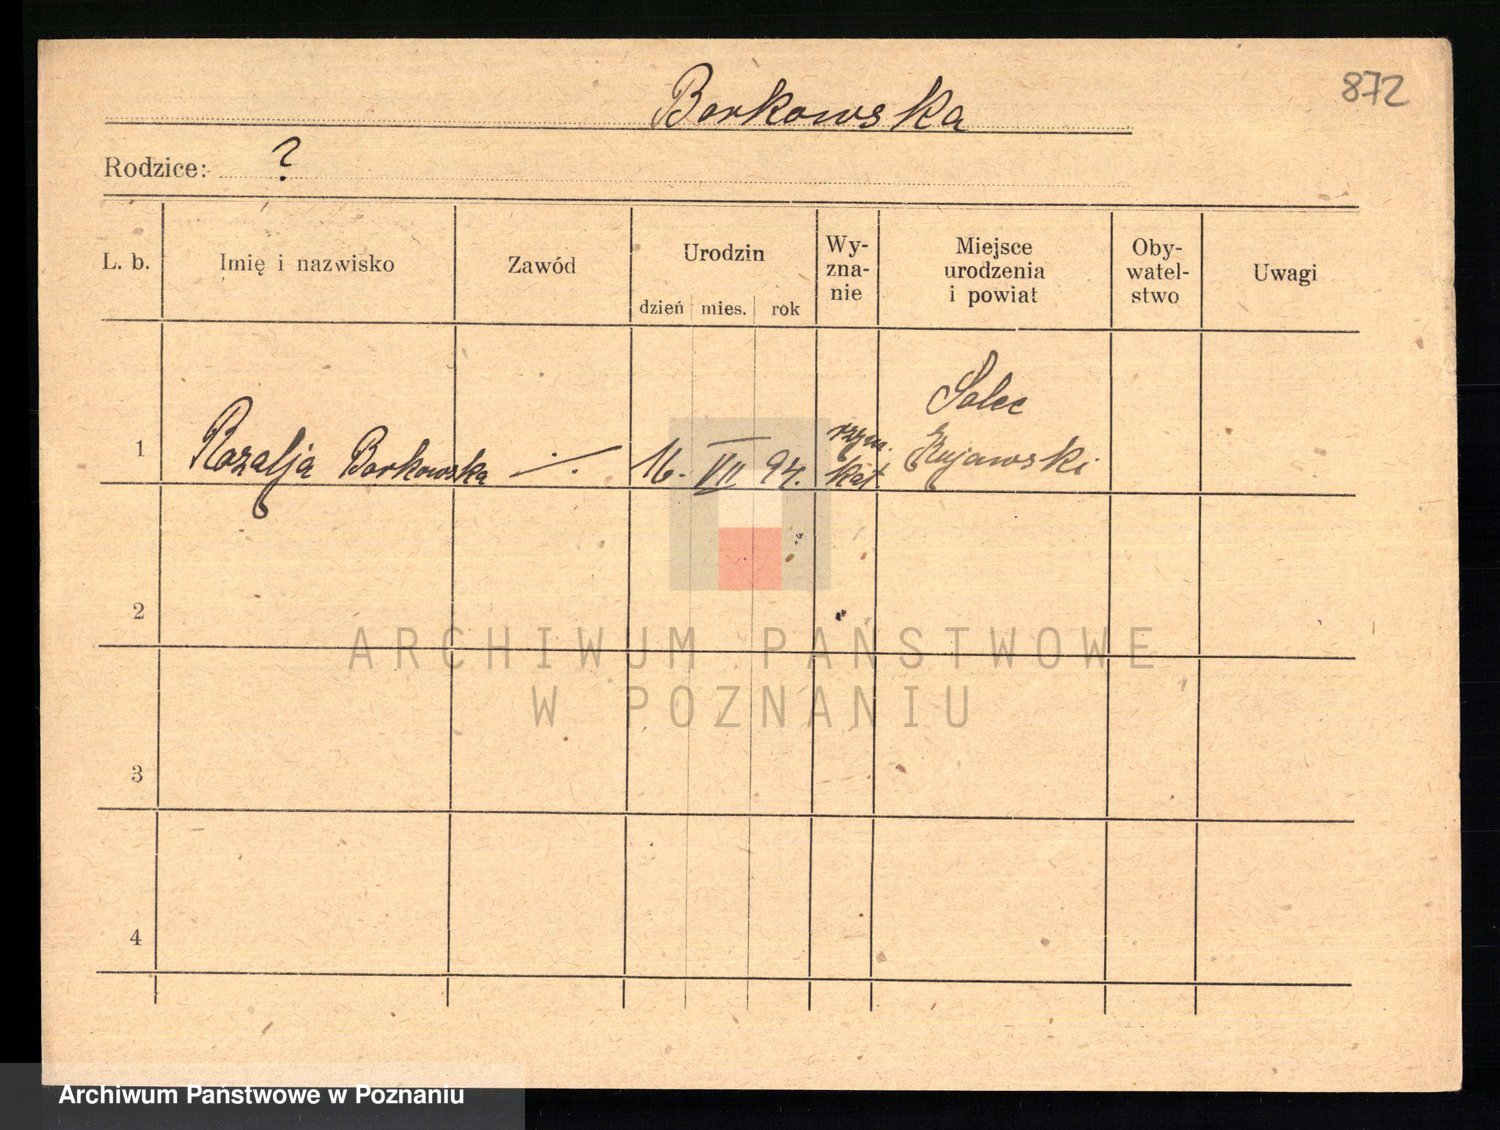 872
Borkowska
Rodzice: ?
L. b. Imię i nazwisko Zawód Urodzin dzień mies. rok Wy-zna-nie Miejsce urodzenia i powiat Oby-watel-stwo Uwagi
1 Rozalja Borkowska ·/. 16. VII 94. rzym. kat. Solec Kujawski
2
3
4
ARCHIWUM PAŃSTWOWE
W POZNANIU
Archiwum Państwowe w Poznaniu